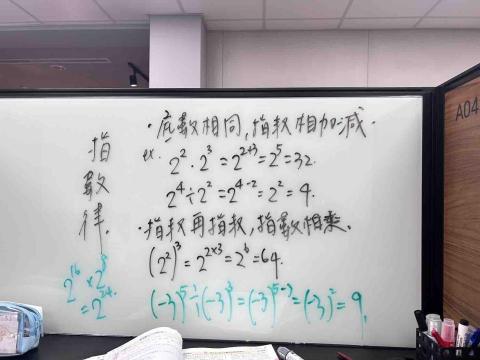 指數律
·底數相同,指數相加減.
ex. 2²·2³=2²⁺³=2⁵=32.
2⁴÷2²=2⁴⁻²=2²=4.
·指數再指數,指數相乘.
(2²)³=2²ˣ³=2⁶=64.
(-3)⁵÷(-3)³=(-3)⁵⁻³=(-3)²=9.
A04